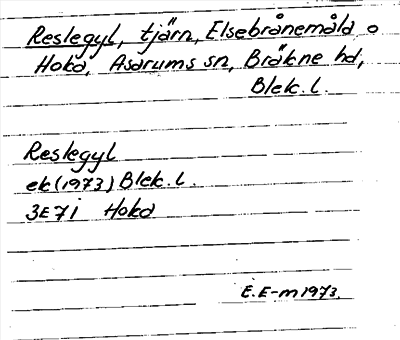 Reslegyl, tjärn, Elsebrånemåla o
Hoka, Asarums sn, Bräkne hd,
Blek. l.
Reslegyl
ek (1973) Blek. l.
3E7i Hoka
E. E-m 1973.